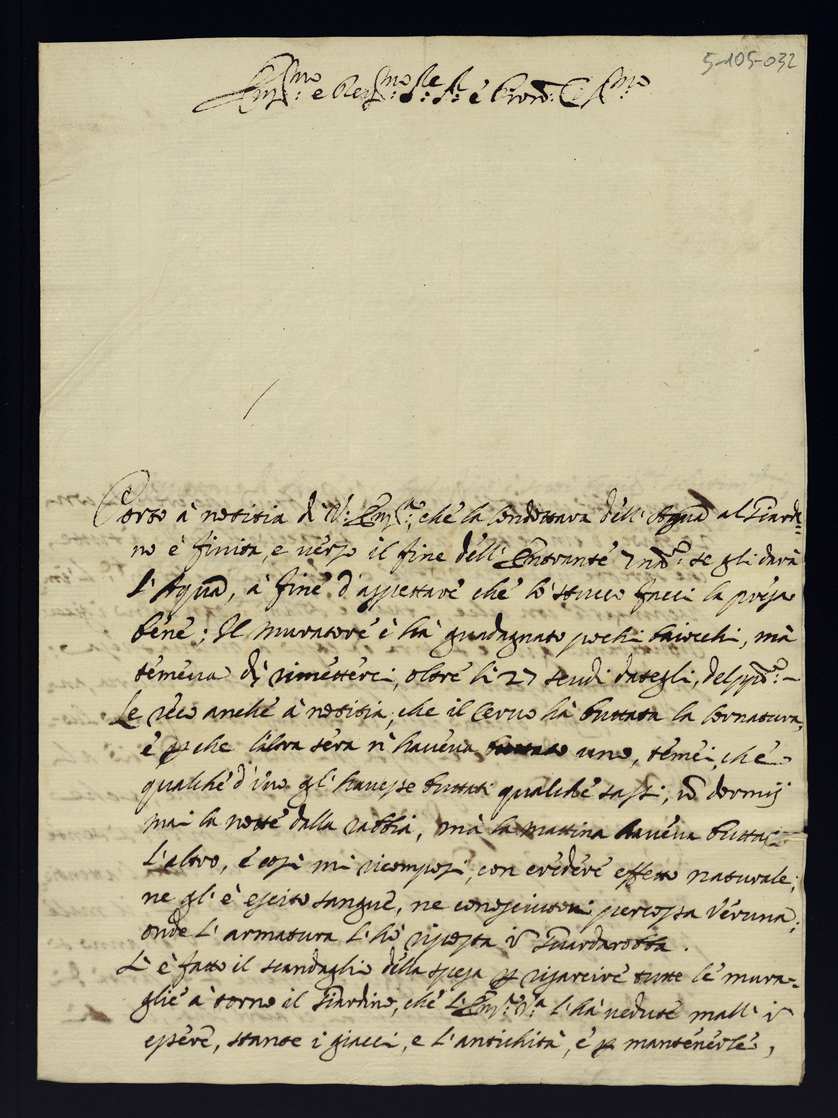 5-105-032
Em:mo e Rev:mo Sre: Sre: è Pron: Col:mo
Porto à notitia di V: Em:za, che la condottura dell'Aqua al Giardi=
no è finita, e verso il fine dell'Entrante 7mbre se gli darà
l'Aqua, à fine d'aspettare che lo stucco facci la presa
bene; Il muratore è hà guadagnato pochi baiocchi, mà
temeva di rimetterci, oltre li 27 scudi dategli, del
Le reco anche à notitia, che il Cervo hà buttata la Cornatura,
è perche l'altra sera n'haveva buttato uno, temei, che
qualched'uno gl'havesse buttati qualche sassi, nò dormij
mai la notte dalla rabbia, mà la mattina haveva buttato
l'altro, è così mi ricomposi, con credere effetto naturale;
ne gl'è escito sangue, ne conosciutovi percossa veruna;
onde l'armatura l'hò riposta in Guardarobba.
Si è fatto il scandaglio della spesa p risarcire tutte le mura=
glie à torno il Giardino, che l'Em:za V:a l'hà vedute mall'in
essere, stante i giacci, e l'antichità, è p mantenerle,